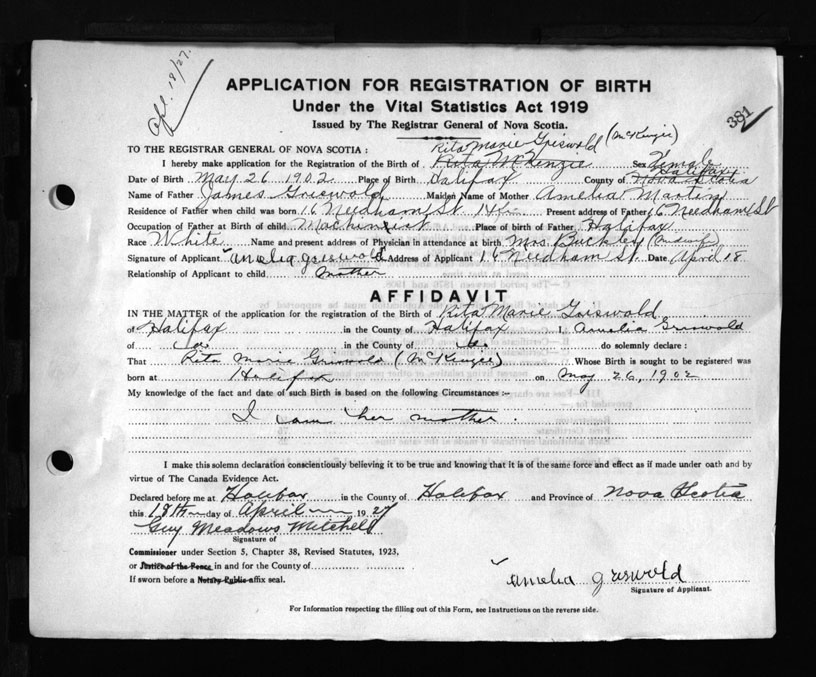 Apl. 18/27.
APPLICATION FOR REGISTRATION OF BIRTH
Under the Vital Statistics Act 1919
Issued by The Registrar General of Nova Scotia.
381
Rita Marie Griswold (McKenzie)
TO THE REGISTRAR GENERAL OF NOVA SCOTIA :
I hereby make application for the Registration of the Birth of Rita McKenzie Sex Female
Halifax
Date of Birth May 26 1902 Place of Birth Halifax County of Nova Scotia
Name of Father James Griswold Maiden Name of Mother Amelia Martin
Residence of Father when child was born 16 Needham St Hx Present address of Father 16 Needham St
Occupation of Father at Birth of child Machinist Place of Birth of Father Halifax
Race White Name and present address of Physician in attendance at birth Mrs Buckley (Midwife)
Signature of Applicant amelia griswold Address of Applicant 16 Needham St. Date April 18
Relationship of Applicant to child mother
AFFIDAVIT
IN THE MATTER of the application for the registration of the Birth of Rita Marie Griswold
of Halifax in the County of Halifax I, Amelia Griswold
of do in the County of do do solemnly declare :
That Rita Marie Griswold (McKenzie) Whose Birth is sought to be registered was
born at Halifax on May 26, 1902
My knowledge of the fact and date of such Birth is based on the following Circumstances :-
I am her mother.
I make this solemn declaration conscientiously believing it to be true and knowing that it is of the same force and effect as if made under oath and by
virtue of The Canada Evidence Act.
Declared before me at Halifax in the County of Halifax and Province of Nova Scotia
this 18th day of April 1927
Guy Meadows Mitchell
Signature of
Commissioner under Section 5, Chapter 38, Revised Statutes, 1923,
or Justice of the Peace in and for the County of
If sworn before a Notary Public affix seal.
amelia griswold
Signature of Applicant.
For Information respecting the filling out of this Form, see Instructions on the reverse side.